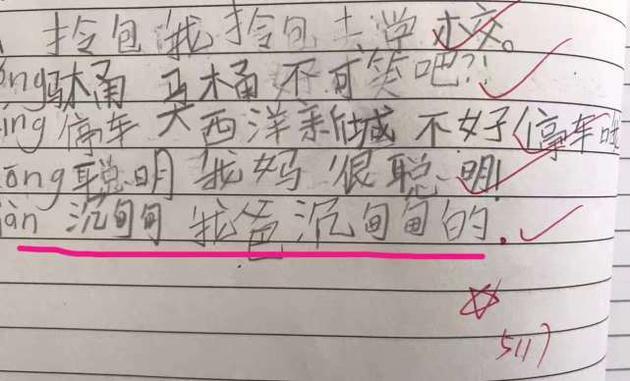 拎包 我拎包去学校。
ōng 马桶 马桶不可笑吧?!
ing 停车 大西洋新城不好停车啦
ōng 聪明 我妈很聪明!
iàn 沉甸甸 我爸沉甸甸的.
5117